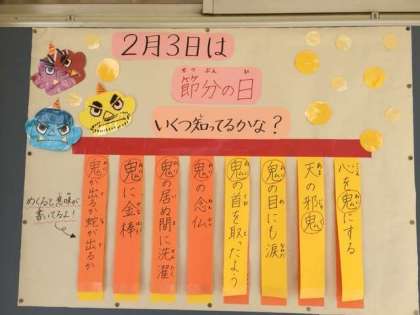 2月3日は
節分の日
せつぶん ひ
いくつ知ってるかな？
心を鬼にする
天の邪鬼
鬼の目にも涙
鬼の首を取ったよう
鬼の念仏
鬼の居ぬ間に洗濯
鬼に金棒
鬼が出るか蛇が出るか
めくると意味が
書いてるよ！